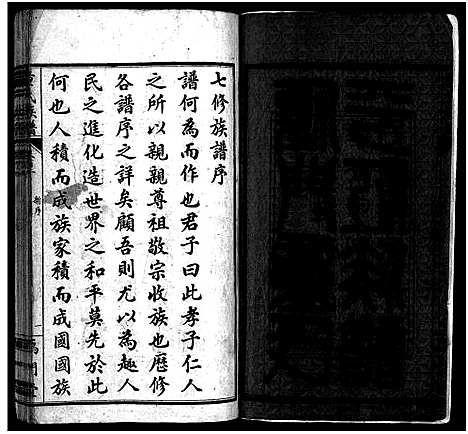 七修族譜序
譜何為而作也君子曰此孝子仁人
之所以親親尊祖敬宗收族也歷修
各譜序之詳矣顧吾則尤以為趣人
民之進化造世界之和平莫先於此
何也人積而成族家積而成國國族